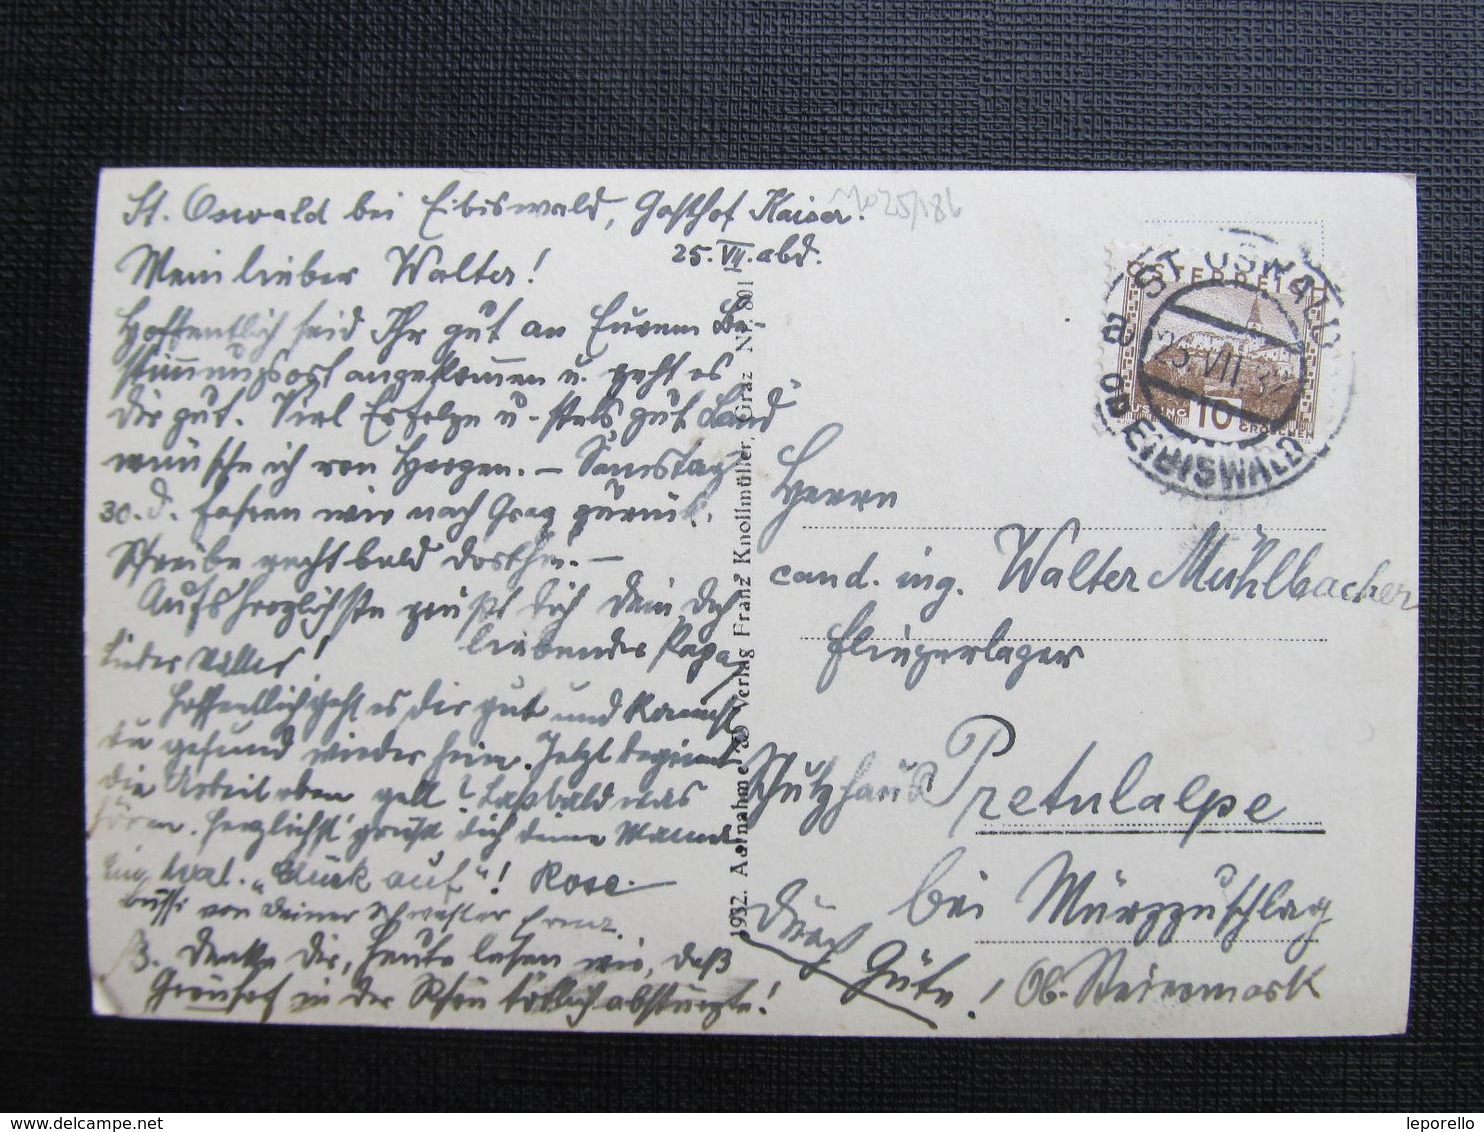 St. Oswald bei Eibiswald, Gasthof Kaiser.
25. VII. abd.
Mein lieber Walter!
Hoffentlich seid Ihr gut an Eurem Be-
stimmungsort angekommen u. geht es
Dir gut. Viel Erfolge u. stets gut Land
wünsche ich von Herzen. – Samstag
30. d. fahren wir nach Graz zurück.
Schreibe recht bald dorthin. –
Aufs herzlichste grüßt Dich Dein Dich
liebender Papa
Hoffentlich geht es dir gut und kommst
du gesund wieder heim. Jetzt beginnt
die Arbeit oben gelt? Laß bald was
hören. Herzlichst grüßt dich deine Mama
"Glück auf"! Rosa.
Bussi von Deiner Schwester
PS. Denke Dir, heute lesen wir, daß
Grönhof in der Rhön tötlich abstürzte!
1932. Aufnahme & Verlag Franz Knollmüller, Graz Nr. 801
ÖSTERREICH
10
GROSCHEN
ST. OSWALD
OB EIBISWALD
25. VII. 32
Herrn
cand. ing. Walter Mühlbacher
Fliegerlager
Schutzhaus Pretulalpe
bei Mürzzuschlag
Durch Güte!
Ob. Steiermark
leporello